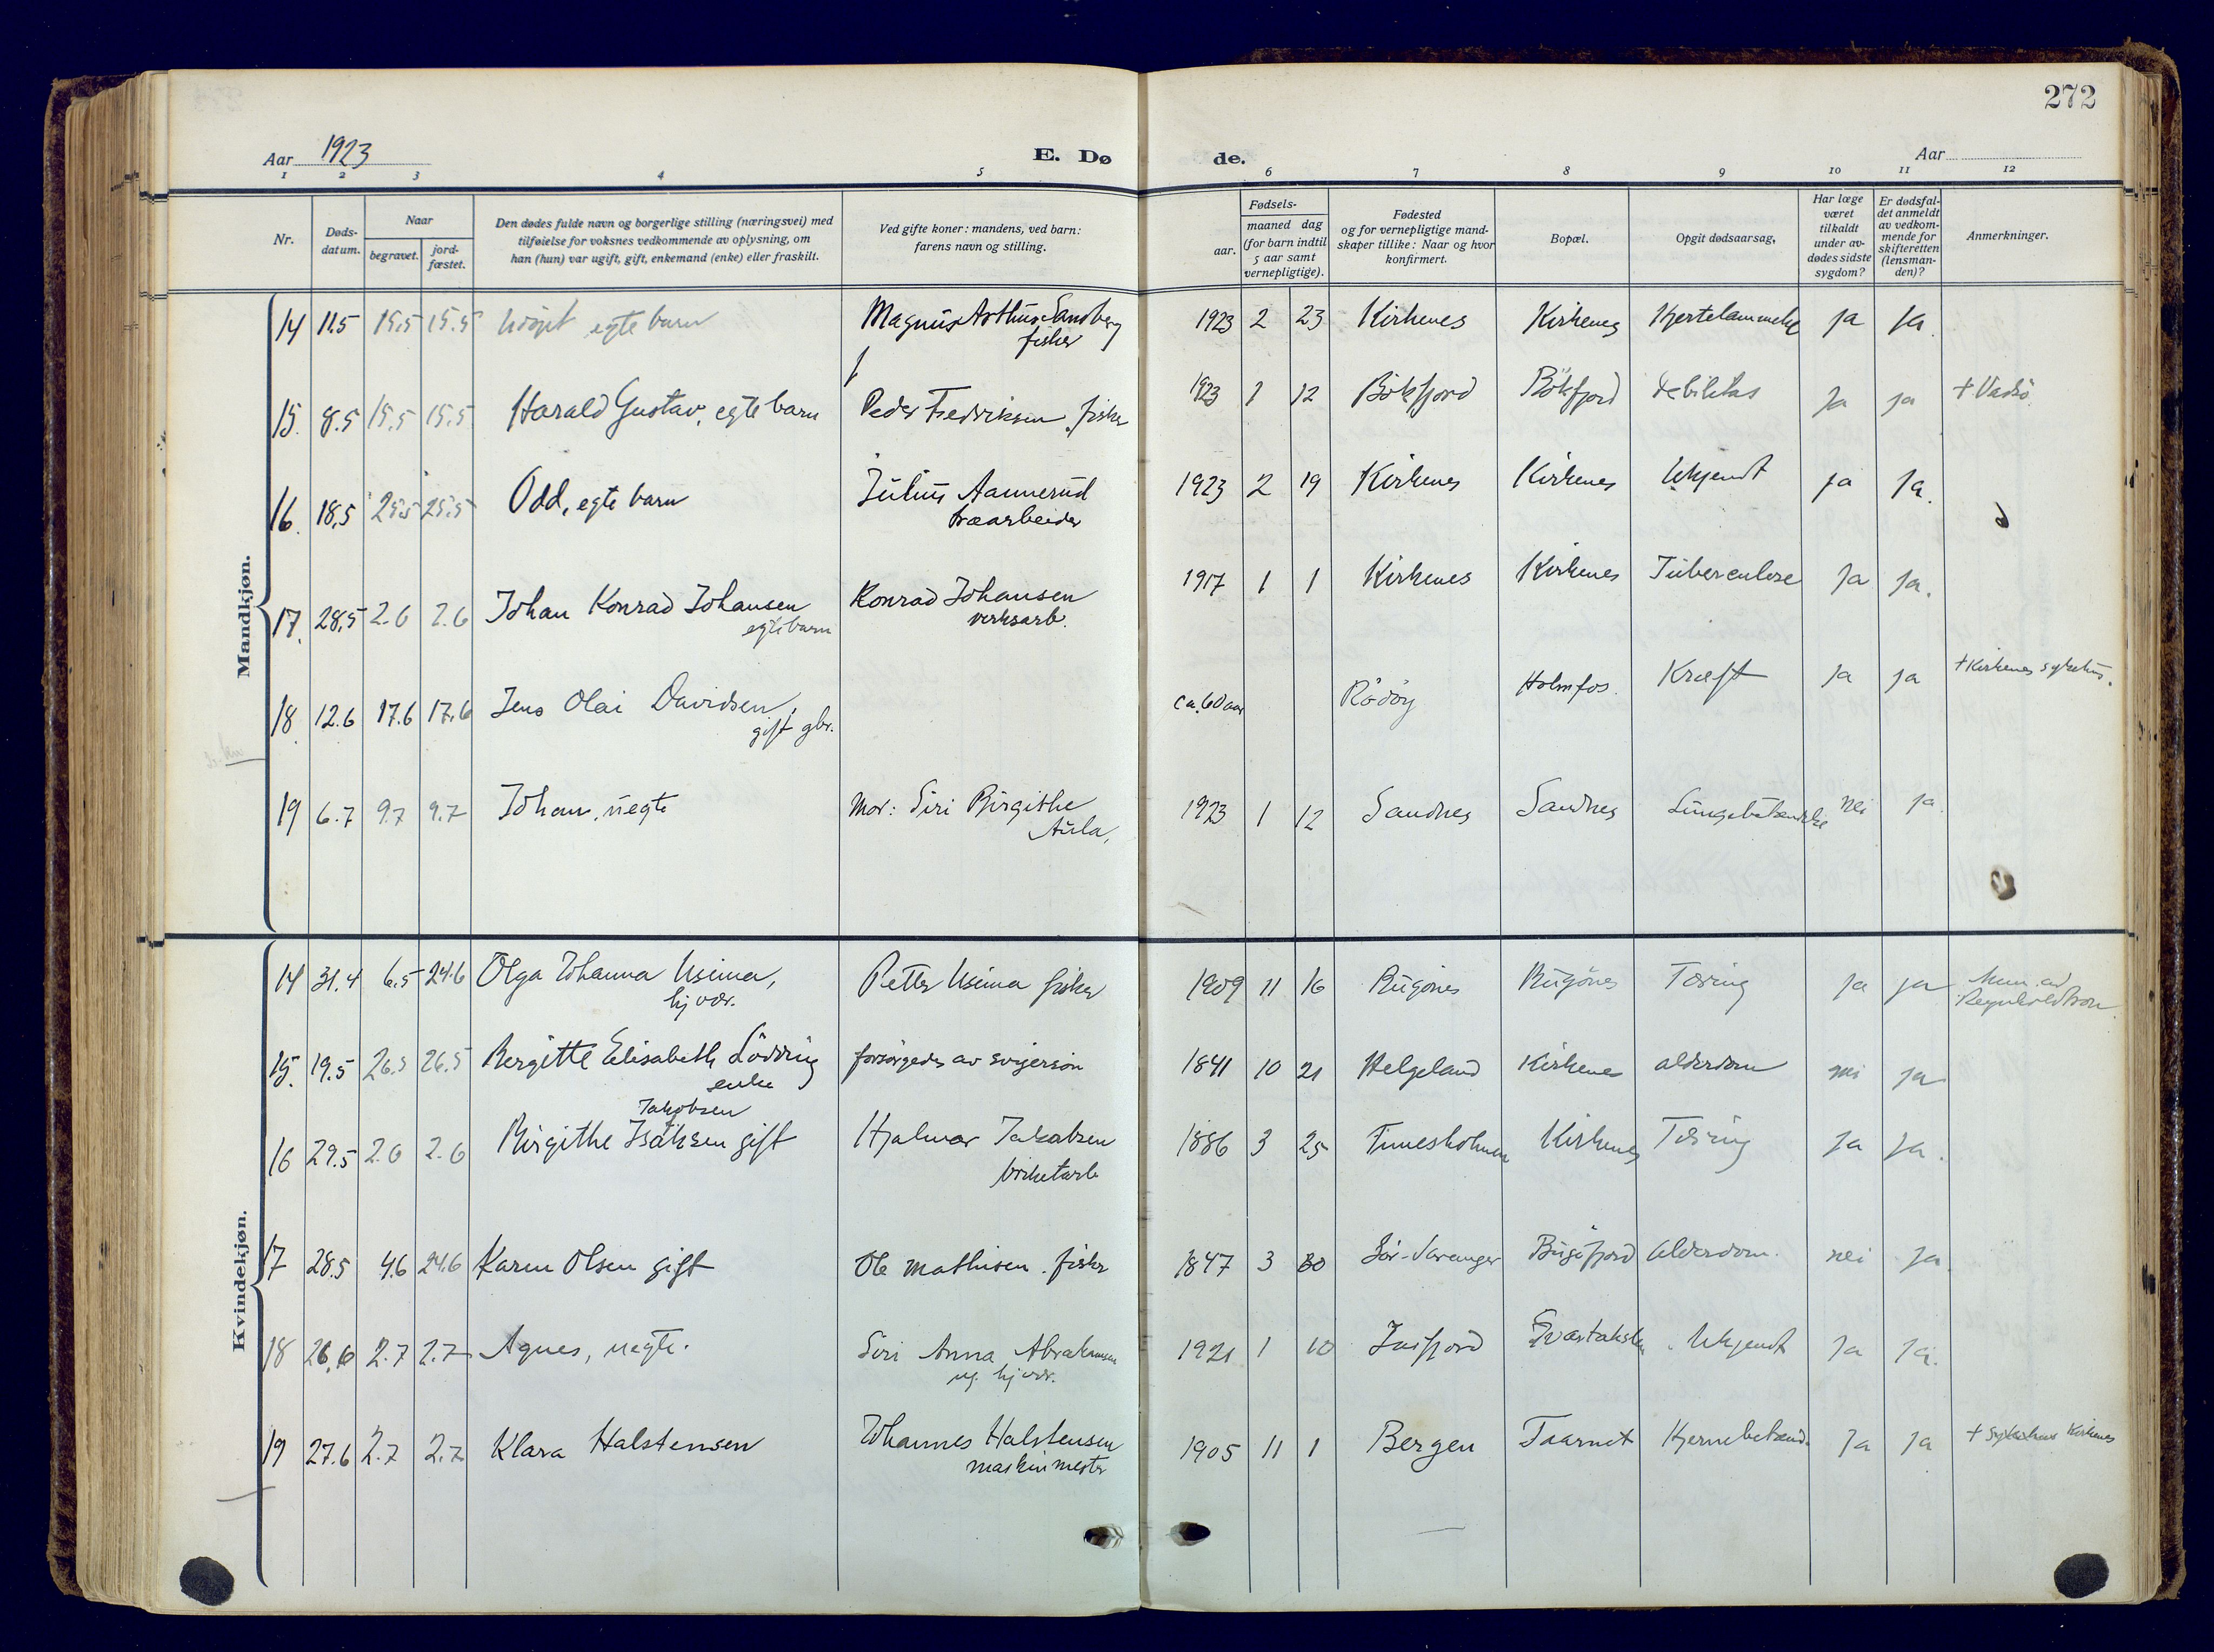 272
Aar 1923
E. Dø de.
Aar
1 2 3 4 5 6 7 8 9 10 11 12
Nr.
Døds-
datum.
Naar
begravet.
jord-
fæstet.
Den dødes fulde navn og borgerlige stilling (næringsvei) med
tilføielse for voksnes vedkommende av oplysning, om
han (hun) var ugift, gift, enkemand (enke) eller fraskilt.
Ved gifte koner: mandens, ved barn:
farens navn og stilling.
Fødsels-
aar.
maaned dag
(for barn indtil
5 aar samt
vernepligtige).
Fødested
og for vernepligtige mand-
skaper tillike: Naar og hvor
konfirmert.
Bopæl.
Opgit dødsaarsag,
Har læge
været
tilkaldt
under av-
dødes sidste
sygdom?
Er dødsfal-
det anmeldt
av vedkom-
mende for
skifteretten
(lensman-
den)?
Anmerkninger.
Mandkjøn.
14 11.5 15.5 15.5 egte barn Magnus Arthur Sandberg 1923 2 23 Kirkenes Kirkenes Hjertelammelse ja ja.
fisker
15. 8.5 15.5 15.5 Harald Gustav, egte barn Peder Fredriksen, fisker 1923 1 12 Bökfjord Bökfjord debilitas ja ja + Vadsö.
16. 18.5 25.5 25.5 Odd, egte barn Julius Aannerud 1923 2 19 Kirkenes Kirkenes Ukjendt ja ja.
træarbeider
17. 28.5 2.6 2.6 Johan Konrad Johansen Konrad Johansen 1917 1 1 Kirkenes Kirkenes Tuberculose ja ja.
egte barn verksarb.
18. 12.6 17.6 17.6 Jens Olai Davidsen, ca. 60 aar Rödöy Holmfos. Kræft ja ja + Kirkenes sykehus.
gift gbr.
19 6.7 9.7 9.7 Johan, uegte Mor: Siri Birgithe 1923 1 12 Sandnes Sandnes Lungebetændelse nei ja.
Aula,
Kvindekjøn.
14 31.4 6.5 24.6 Olga Johanna Useima, Petter Useima fisker 1909 11 16 Bugönes Bugönes Tæring ja ja
hj vær.
15. 19.5 26.5 26.5 Bergitte Elisabeth Lödding forsörgedes av svigersön 1841 10 21 Helgeland Kirkenes alderdom nei ja
enke
Jakobsen
16 29.5 2.6 2.6 Birgithe Isaksen gift Hjalmar Jakobsen 1886 3 25 Finnesholmen Kirkenes Tæring ja ja.
briketarb
17 28.5 4.6 24.6 Karen Olsen gift Ole Mathisen. fisker 1847 3 30 Sör-Varanger Bugöfjord Alderdom. nei ja.
18 26.6 2.7 2.7 Agnes, uegte. Siri Anna Abrahamsen 1921 1 10 Ukjendt ja ja.
ug. hj vær.
19 27.6 2.7 2.7 Klara Halstensen Johannes Halstensen 1905 11 1 Bergen Taarnet Hjernebetænd. ja ja + Sykehus Kirkenes
maskinmester